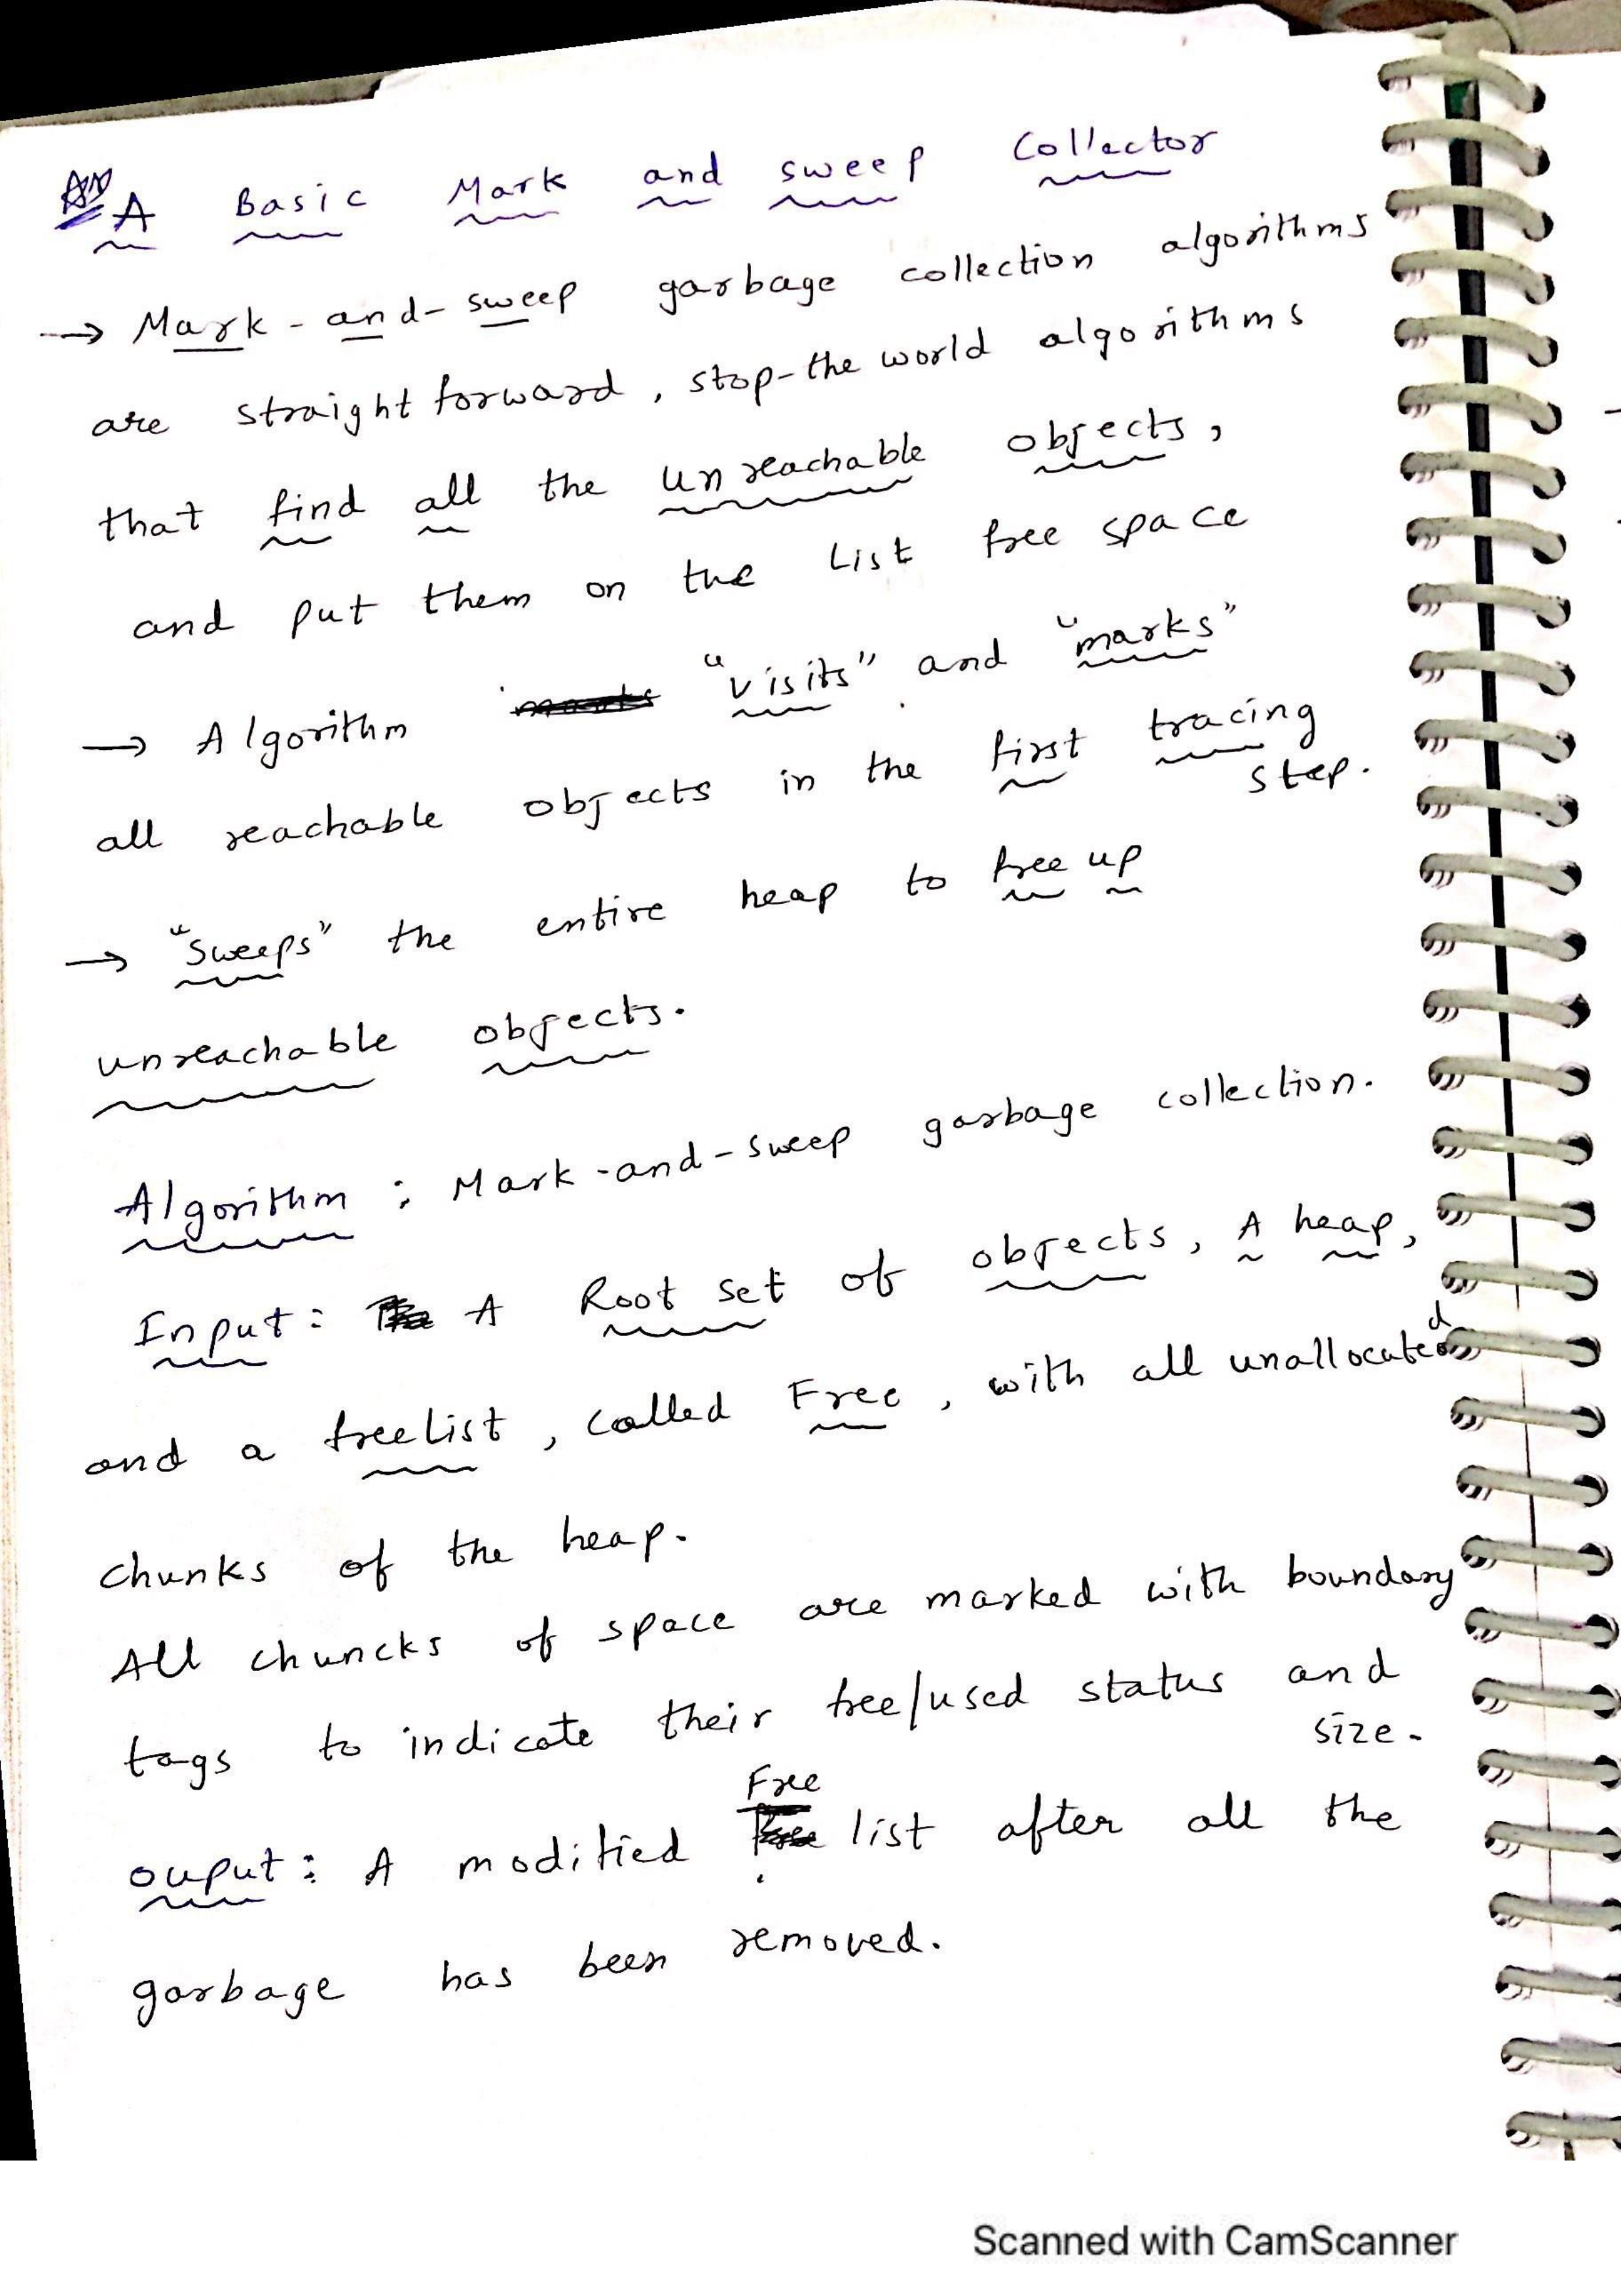 A Basic Mark and sweep Collector
→ Mark-and-sweep garbage collection algorithms
are straight forward, stop-the world algorithms
that find all the unreachable objects,
and put them on the List free space
→ Algorithm "visits" and "marks"
all reachable objects in the first tracing
step.
→ "Sweeps" the entire heap to free up
unreachable objects.
Algorithm : Mark-and-sweep garbage collection.
Input: A Root set of objects, A heap,
and a freelist, called Free, with all unallocated
chunks of the heap.
All chuncks of space are marked with boundary
tags to indicate their free/used status and
size.
ouput: A modified Free list after all the
garbage has been removed.
Scanned with CamScanner